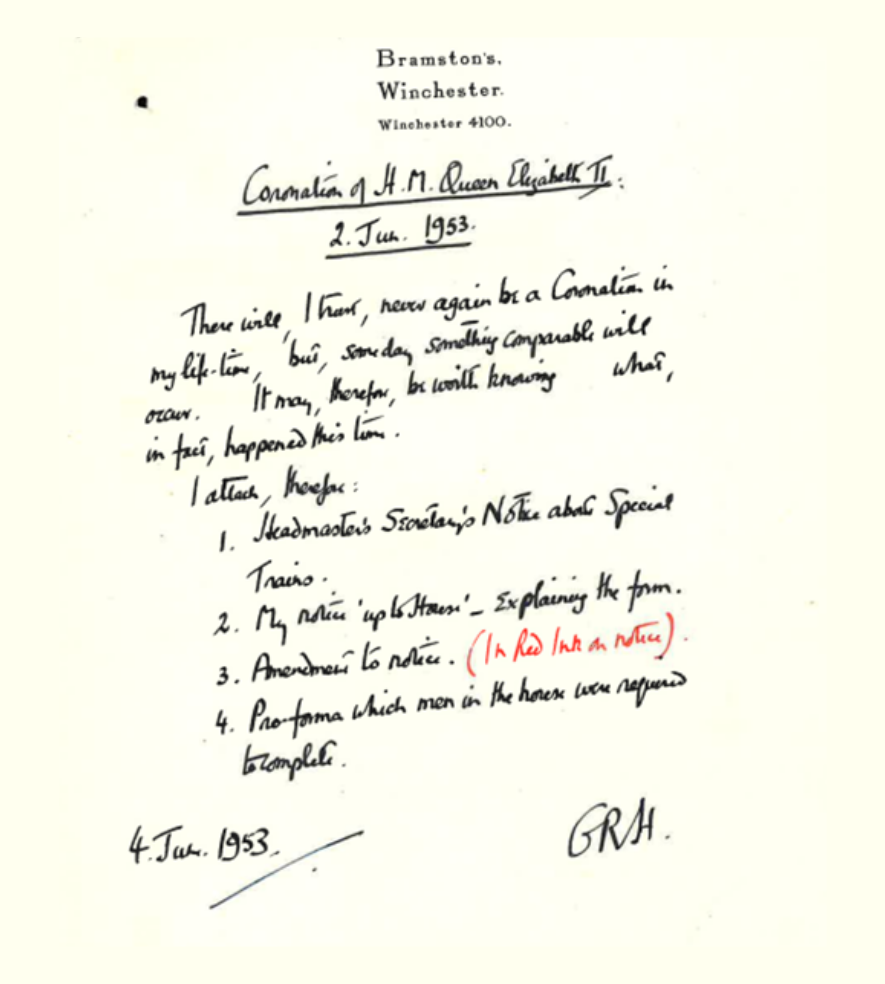 Bramston's,
Winchester.
Winchester 4100.
Coronation of H.M. Queen Elizabeth II:
2. Jun. 1953.
There will, I trust, never again be a Coronation in
my life-time, but, some day, something comparable will
occur. It may, therefore, be worth knowing what,
in fact, happened this time.
I attach, therefore:
1. Headmaster's Secretary's Notice about Special
Trains.
2. My notice 'up to House' - explaining the form.
3. Amendment to notice. (In Red Ink on notice).
4. Pro-forma which men in the house were required
to complete.
4. Jun. 1953.
GRH.